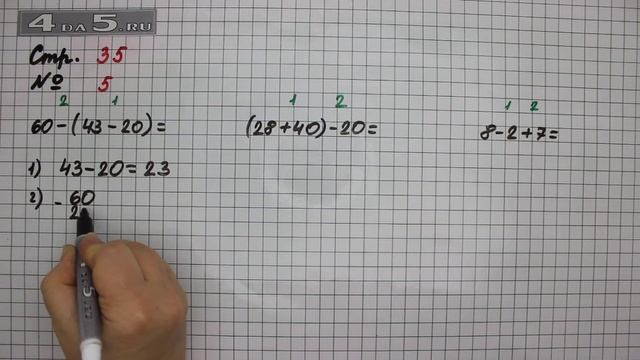 4DA5.RU
Стр. 35
№ 5
2 1
60-(43-20)=
1 2
(28+40)-20=
1 2
8-2+7=
1) 43-20=23
2) - 60
2